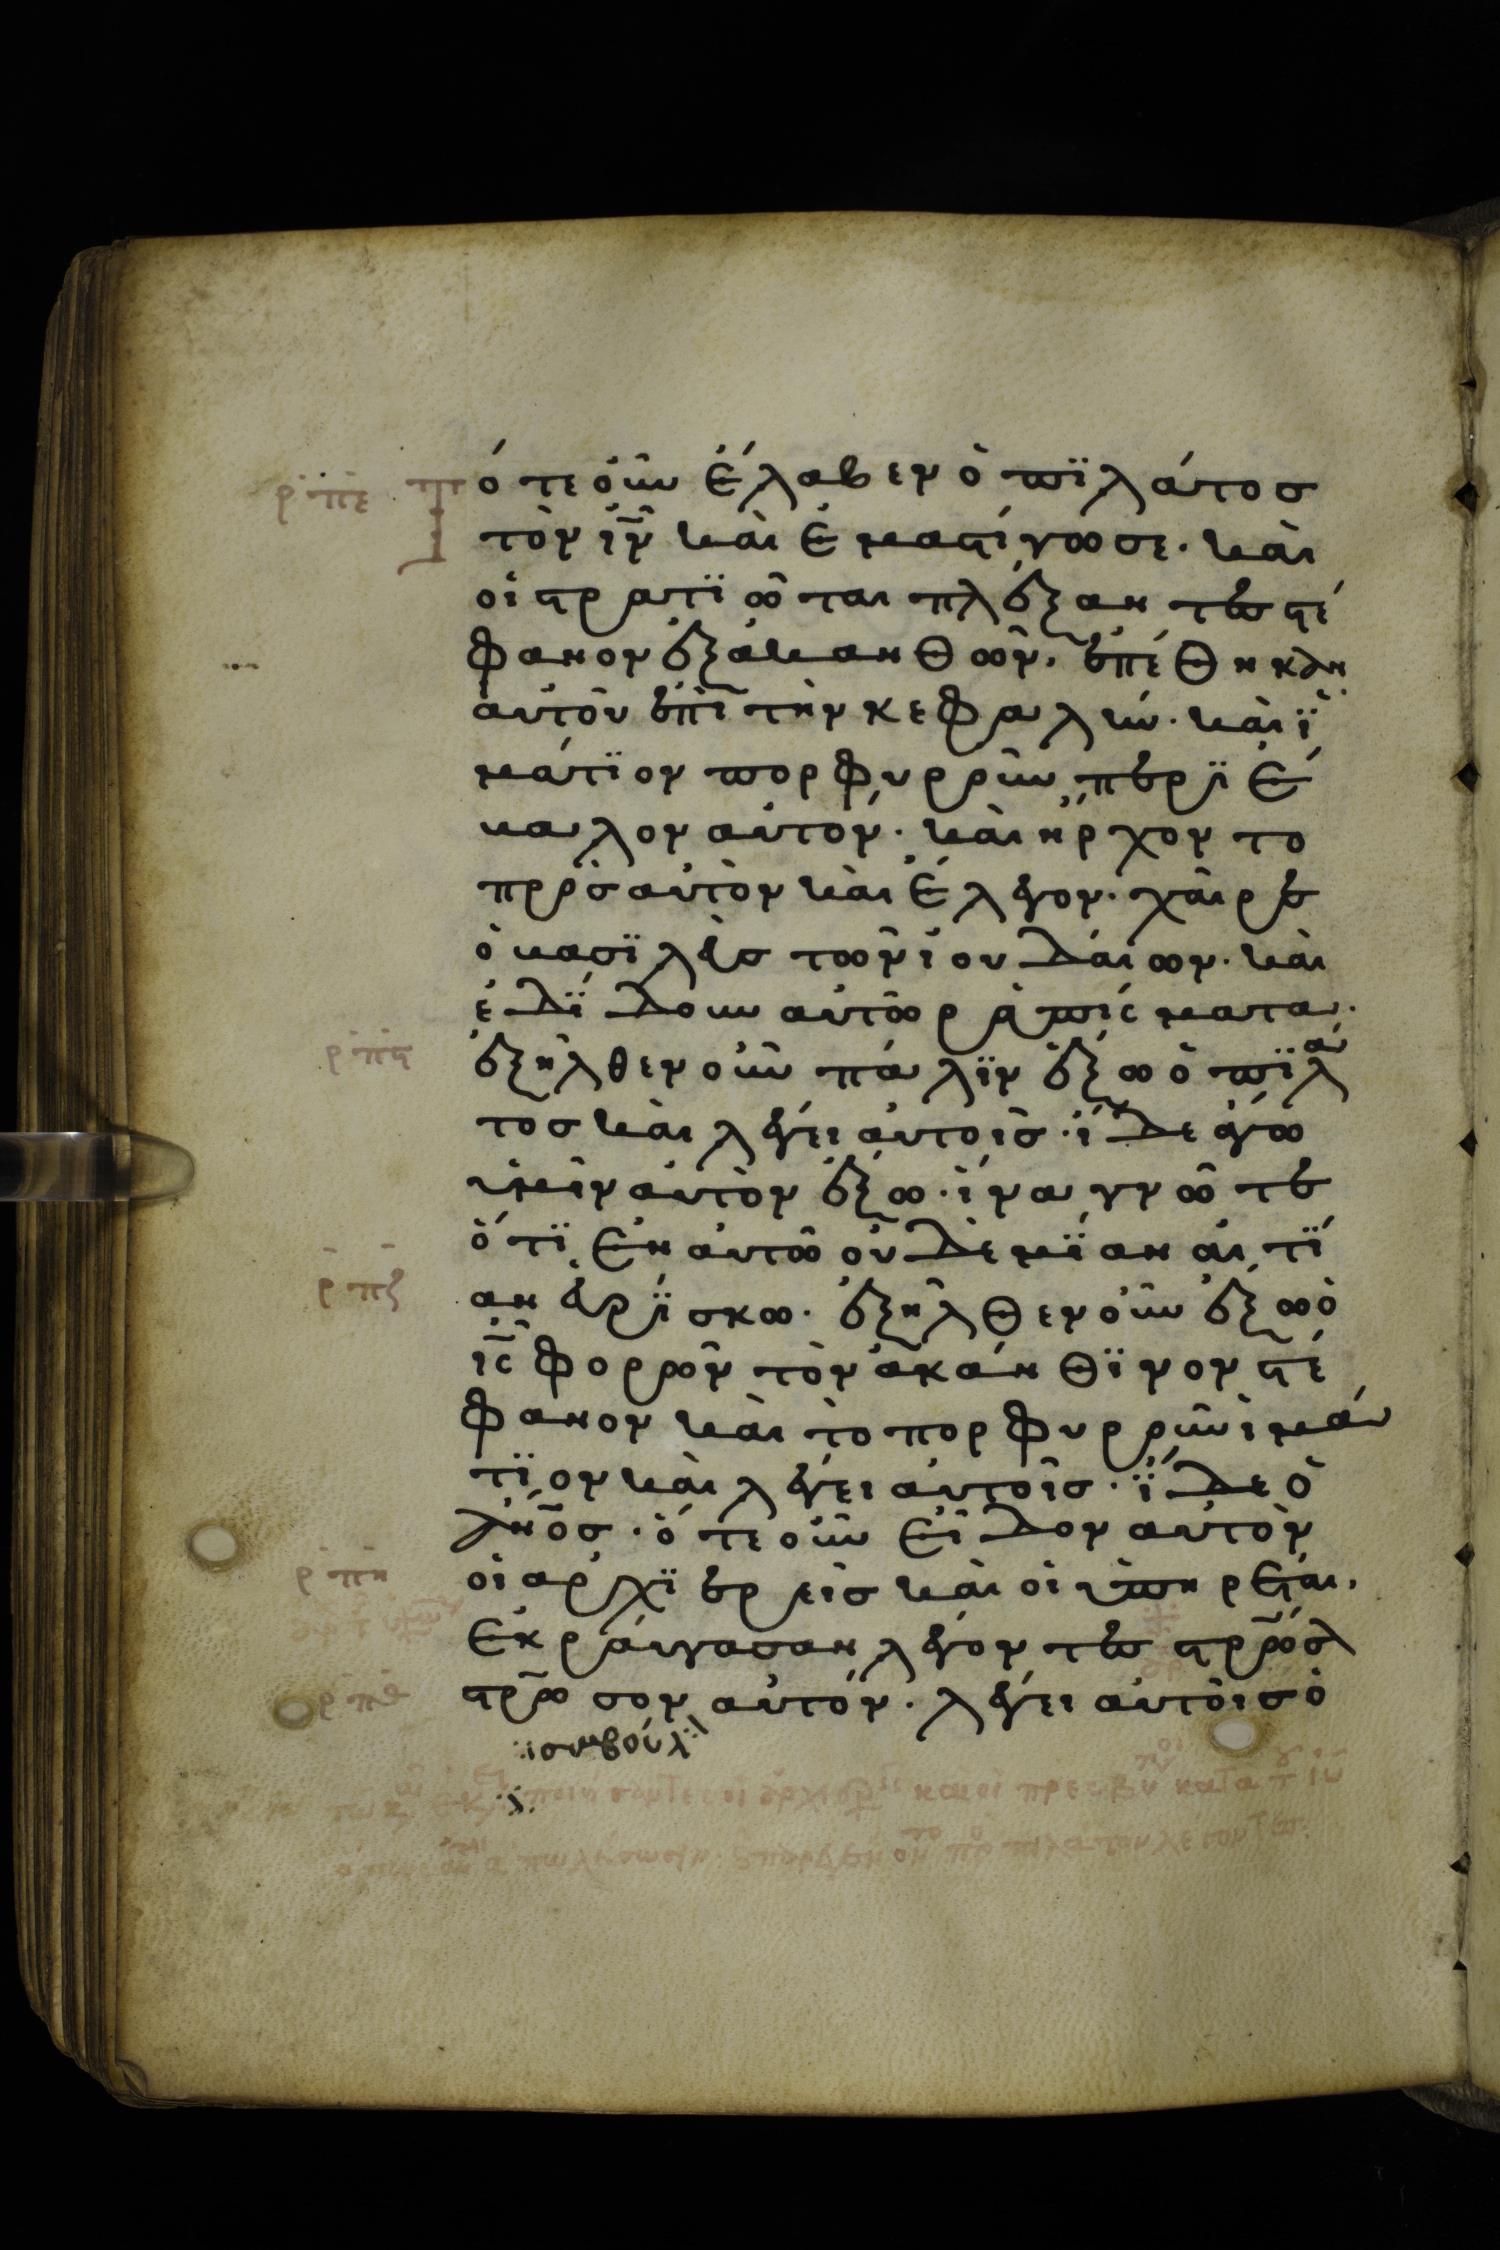 ρπε Τότε οὖν ἔλαβεν ὁ πϊλάτοσ
τὸν ιν̅ καὶ ἐμαστίγωσε· καὶ
οἱ στρατϊῶται πλέξαντεσ στέ
φανον ἐξ ἀκανθῶν, ἐπέθηκαν
αὐτοῦ ἐπὶ τὴν κεφαλήν· καὶ ϊ
μάτϊον πορφυροῦν περϊέ
βαλον αὐτόν· καὶ ἤρχοντο
πρὸσ αὐτὸν καὶ ἔλεγον· χαῖρε
ὁ βασϊλεὺσ τῶν ἰουδαίων· καὶ
ἐδϊδουν αὐτῶ ραπίσματα·
ρπς ἐξῆλθεν οὖν πάλϊν ἔξω ὁ πϊλά
τοσ καὶ λέγει αὐτοῖσ· ἴδε ἄγω
ὑμῖν αὐτὸν ἔξω· ἵνα γνῶτε
ὅτϊ ἐν αὐτῶ οὐδεμΐαν αἰτΐ
ρπζ αν εὑρΐσκω· ἐξῆλθεν οὖν ἔξω ὁ
ισ̅ φορῶν τὸν ἀκάνθϊνον στέ
φανον καὶ τὸ πορφυροῦν ἱμά
τϊον καὶ λέγει αὐτοῖσ· ἴδε ὁ
ἀν̅οσ· ὅτε οὖν εἶδον αὐτὸν
ρπη οἱ ἀρχϊερεῖσ καὶ οἱ ὑπηρέται,
ἐκράυγασαν λέγοντεσ στρο̅σ
ρπθ στρ̅ωσον αὐτόν· λέγει αὐτοῖσ ὁ
συμβούλ